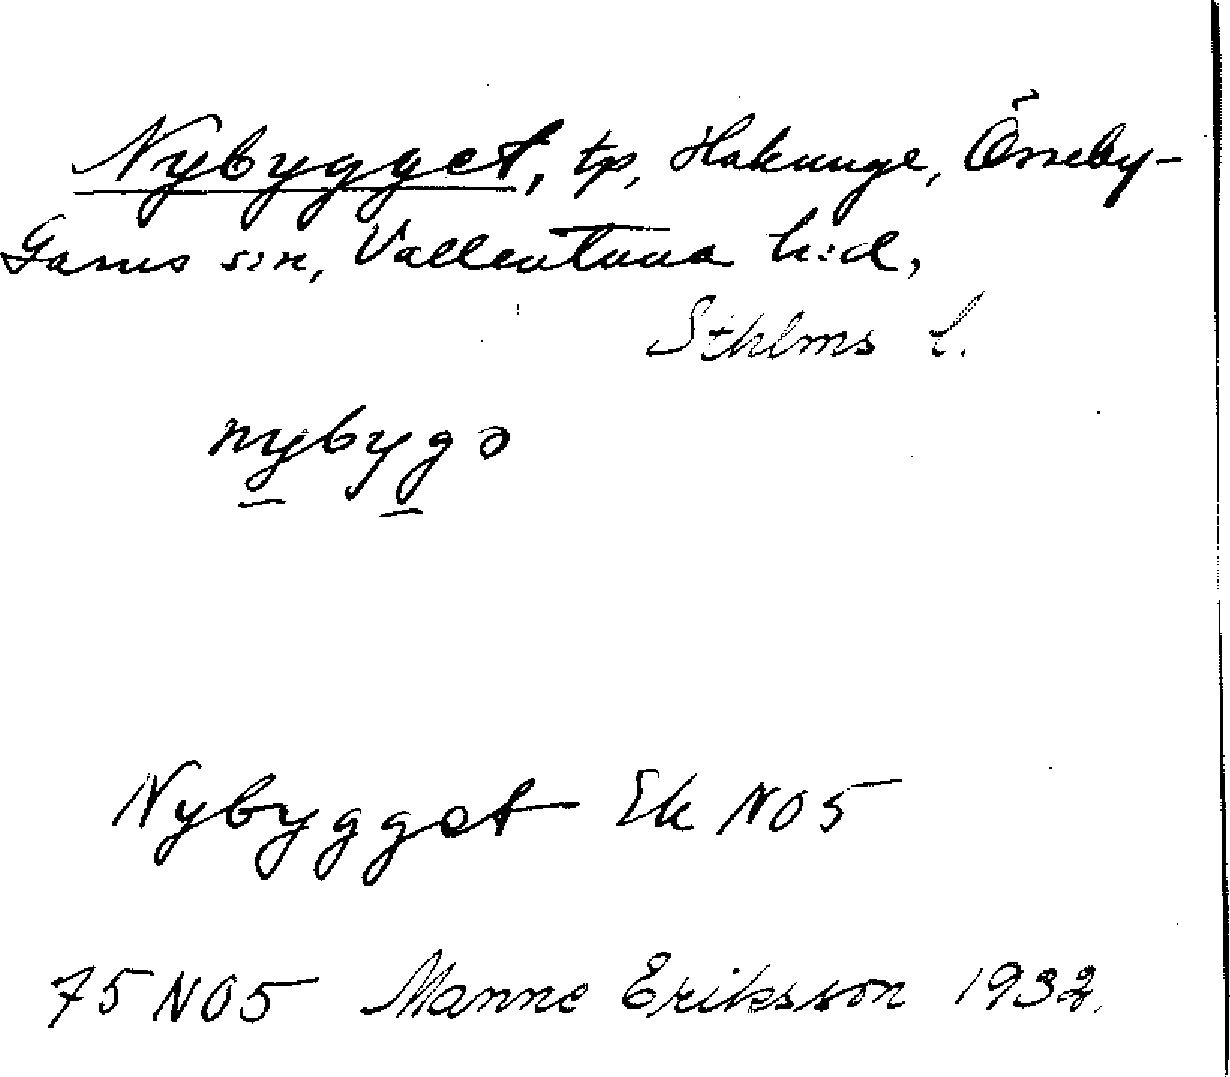 Nybygget, tp, Hakunge, Össeby-
Garns sn, Vallentuna h:d,
Sthlms l.
nybygə
Nybygget Ek NO5
75 NO5 Manne Eriksson 1932.